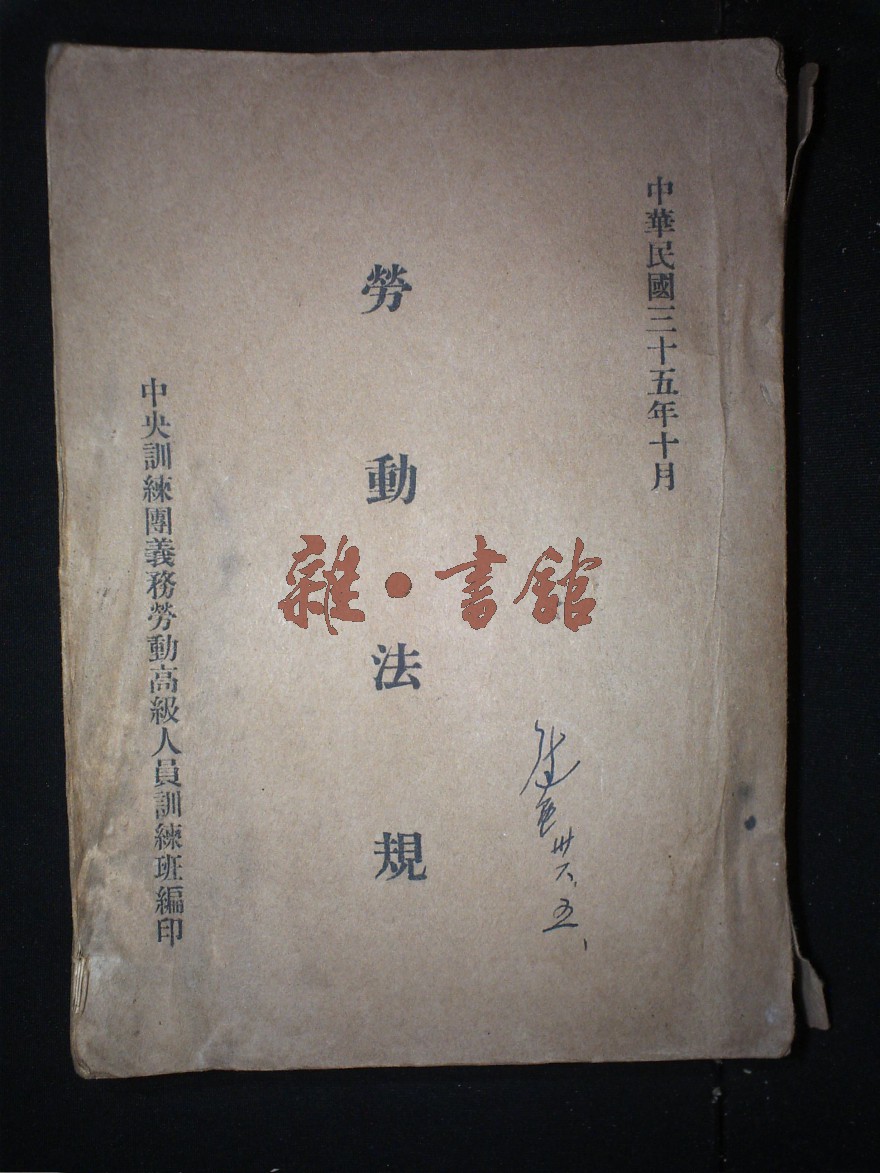 中華民國三十五年十月
勞動法規
中央訓練團義務勞動高級人員訓練班編印
雜·書館
卅六、五、